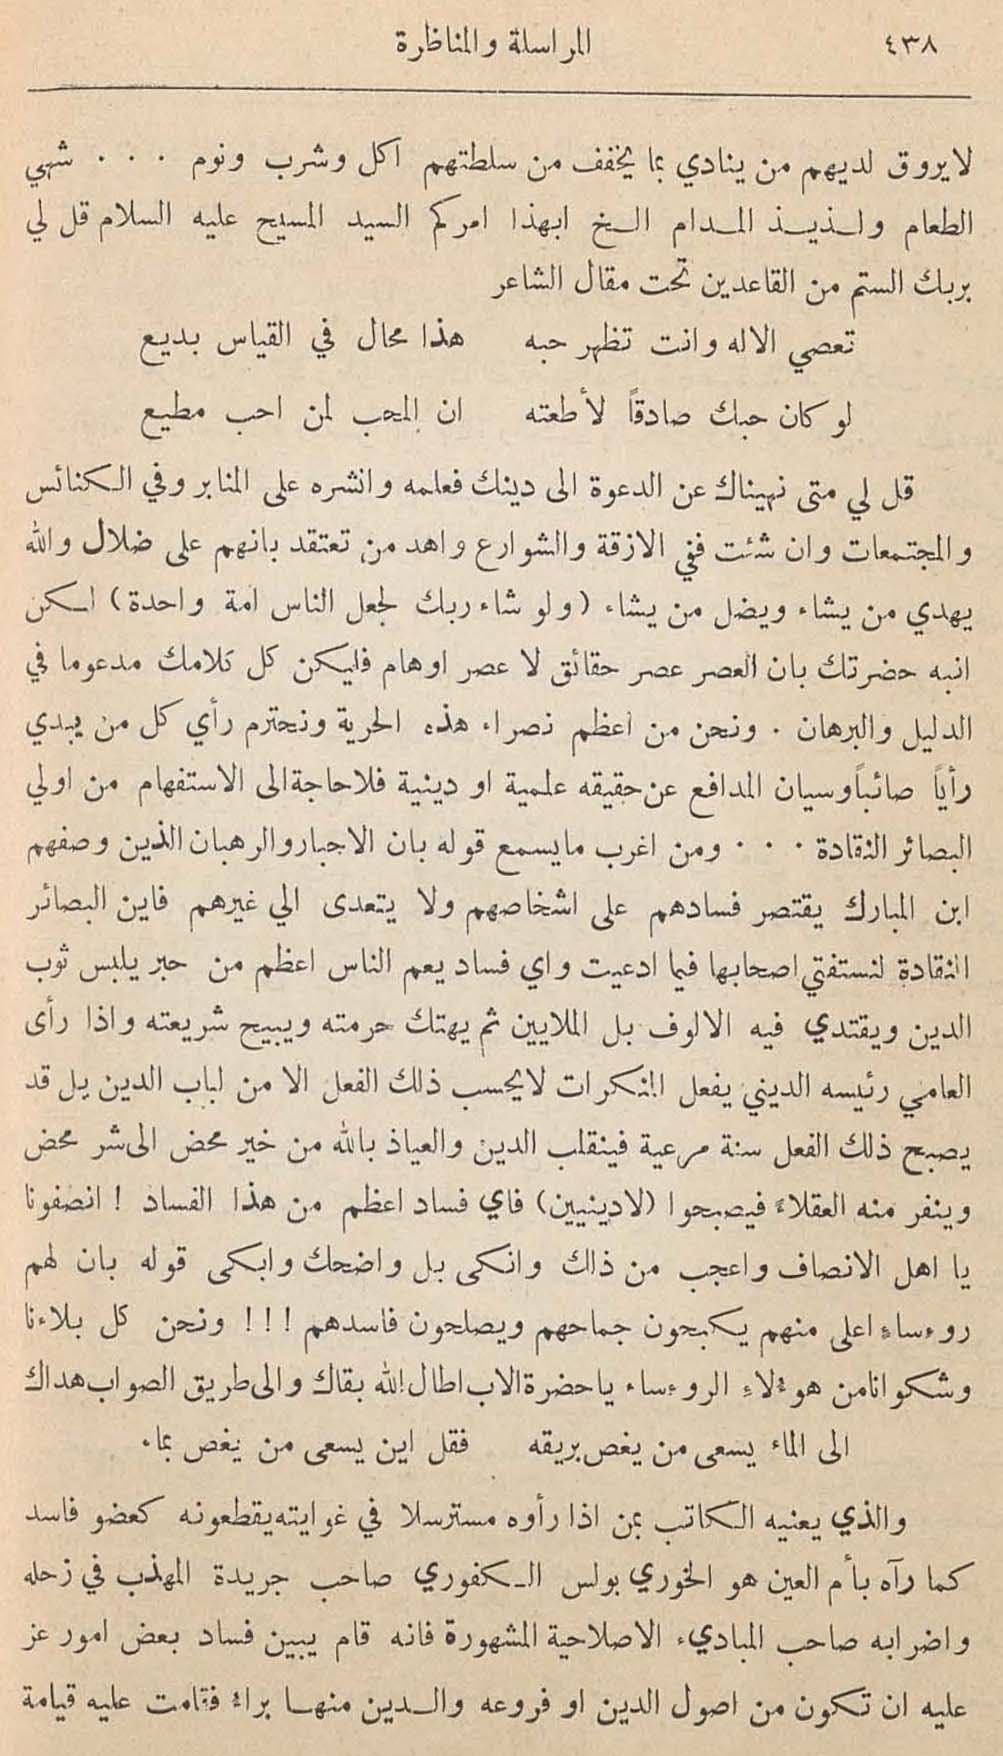 ٤٣٨ المراسلة والمناظرة
لا يروق لديهم من ينادي بما يخفف من سلطتهم اكل وشرب ونوم ٠ ٠ ٠ شهي
الطعام ولـذيـذ المـدام الـخ ابهذا امركم السيد المسيح عليه السلام قل لي
بربك الستم من القاعدين تحت مقال الشاعر
تعصي الاله وانت تظهر حبه هذا محال في القياس بديع
لو كان حبك صادقاً لأطعته ان المحب لمن احب مطيع
قل لي متى نهيناك عن الدعوة الى دينك فعلمه وانشره على المنابر وفي الكنائس
والمجتمعات وان شئت ففي الازقة والشوارع واهد من تعتقد بانهم على ضلال والله
يهدي من يشاء ويضل من يشاء (ولو شاء ربك لجعل الناس امة واحدة) لكن
انبه حضرتك بان العصر عصر حقائق لا عصر اوهام فليكن كل كلامك مدعوما في
الدليل والبرهان ٠ ونحن من اعظم نصراء هذه الحرية ونحترم رأي كل من يبدي
رأياً صائباً وسيان المدافع عن حقيقه علمية او دينية فلا حاجة الى الاستفهام من اولي
البصائر النقادة ٠ ٠ ٠ ومن اغرب مايسمع قوله بان الاحبار والرهبان الذين وصفهم
ابن المبارك يقتصر فسادهم على اشخاصهم ولا يتعدى الي غيرهم فاين البصائر
النقادة لنستفتي اصحابها فيما ادعيت واي فساد يعم الناس اعظم من حبر يلبس ثوب
الدين ويقتدي فيه الالوف بل الملايين ثم يهتك حرمته ويبيح شريعته واذا رأى
العامي رئيسه الديني يفعل المنكرات لايحسب ذلك الفعل الا من لباب الدين بل قد
يصبح ذلك الفعل سنة مرعية فينقلب الدين والعياذ بالله من خير محض الى شر محض
وينفر منه العقلاء فيصبحوا (لادينيين) فاي فساد اعظم من هذا الفساد ! انصفونا
يا اهل الانصاف واعجب من ذاك وانكى بل واضحك وابكى قوله بان لهم
روءساء اعلى منهم يكبحون جماحهم ويصلحون فاسدهم ! ! ! ونحن كل بلاءنا
وشكوانا من هوءلاء الروءساء يا حضرة الاب اطال الله بقاك والى طريق الصواب هداك
الى الماء يسعى من يغص بريقه فقل اين يسعى من يغص بماء
والذي يعنيه الكاتب بمن اذا رأوه مسترسلا في غوايته يقطعونه كعضو فاسد
كما رآه بأم العين هو الخوري بولس الـكفوري صاحب جريدة المهذب في زحله
واضرابه صاحب المباديء الاصلاحية المشهورة فانه قام يبين فساد بعض امور عز
عليه ان تكون من اصول الدين او فروعه والـدين منهـا براء فقامت عليه قيامة